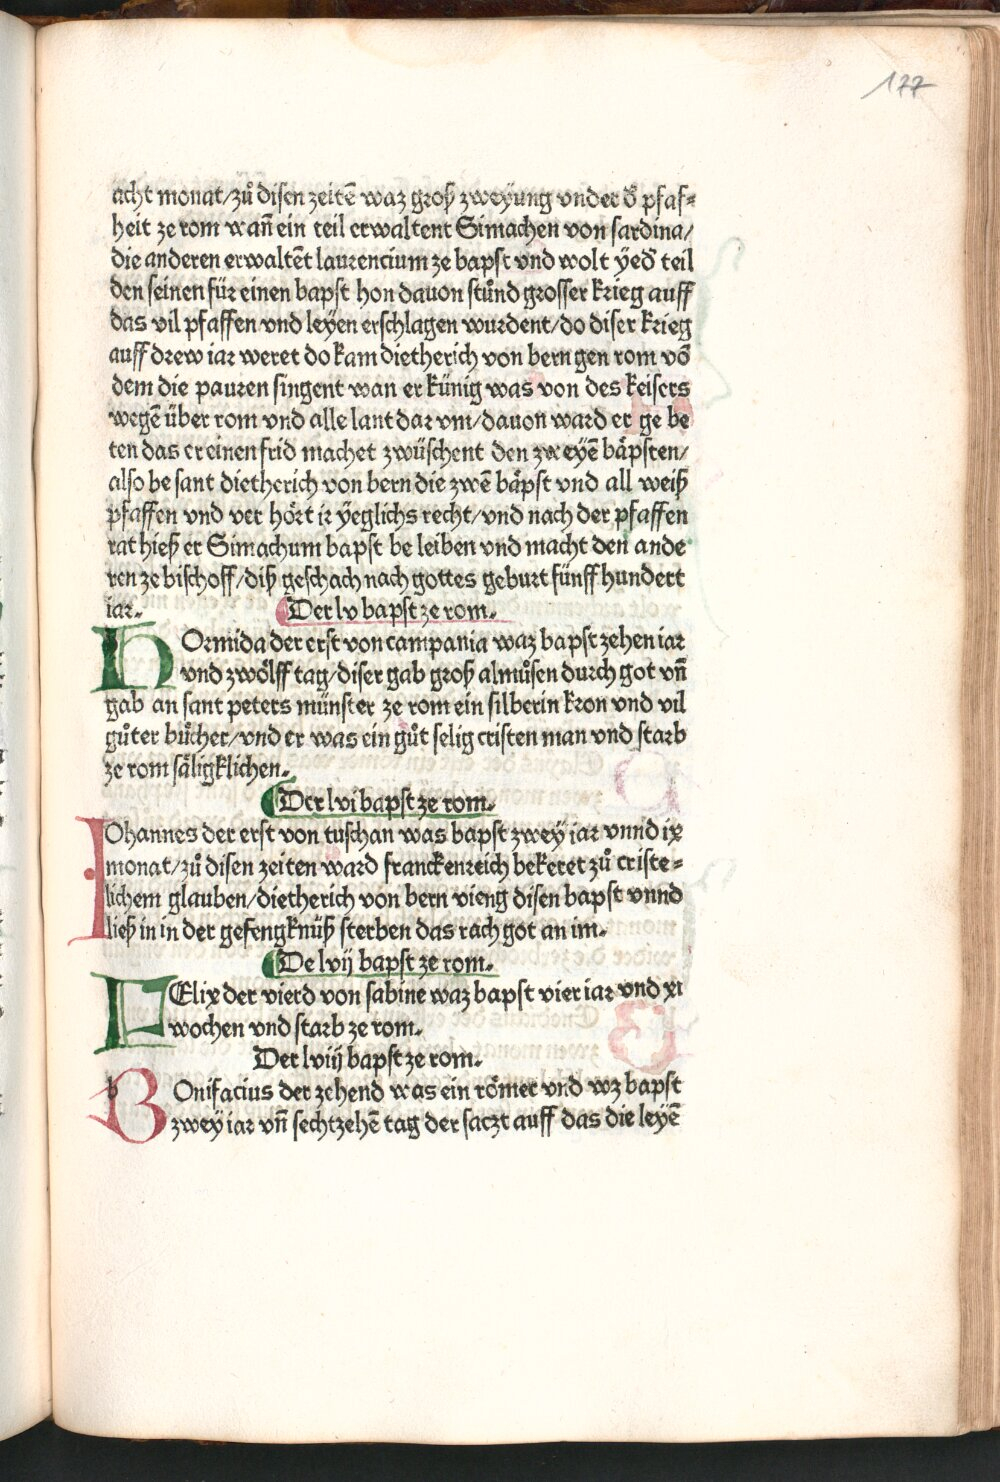 177
acht monat/zuͦ disen zeitē waz groß zweyung vnder d̕ pfaf⸗
heit ze rom wañ ein teil erwaltent Simachen von sardina/
die anderen erwaltēt laurencium ze bapst vnd wolt yed̕ teil
den seinen für einen bapst hon dauon stuͦnd grosser krieg auff
das vil pfaffen vnd leyen erschlagen wurdent/do diser krieg
auff drew iar weret do kam dietherich von bern gen rom võ
dem die pauren singent wan er künig was von des keisers
wegē über rom vnd alle lant dar vm/dauon ward er ge be
ten das er einen frid machet zwüschent den zweyē baͤpsten/
also be sant dietherich von bern die zwē baͤpst vnd all weiß
pfaffen vnd ver hoͤrt ir yeglichs recht/vnd nach der pfaffen
rat hieß er Simachum bapst be leiben vnd macht den ande
ren ze bischoff/diß geschach nach gottes geburt fünff hundert
iar.
Der lv bapst ze rom.
HOrmida der erst von campania waz bapst zehen iar
vnd zwoͤlff tag/diser gab groß almuͦsen durch got vñ
gab an sant peters münster ze rom ein silberin kron vnd vil
guͦter buͤcher/vnd er was ein guͦt selig cristen man vnd starb
ze rom saͤligklichen.
Der lvi bapst ze rom.
IOhannes der erst von tuschan was bapst zwey iar vnnd ix
monat/zuͦ disen zeiten ward franckenreich bekeret zuͦ criste⸗
lichem glauben/dietherich von bern vieng disen bapst vnnd
ließ in in der gefengknüß sterben das rach got an im.
De lvij bapst ze rom.
FElix der vierd von sabine waz bapst vier iar vnd xi
wochen vnd starb ze rom.
Der lviij bapst ze rom.
BOnifacius der zehend was ein roͤmer vnd wz bapst
zwey iar vñ sechtzehē tag der saczt auff das die leyē